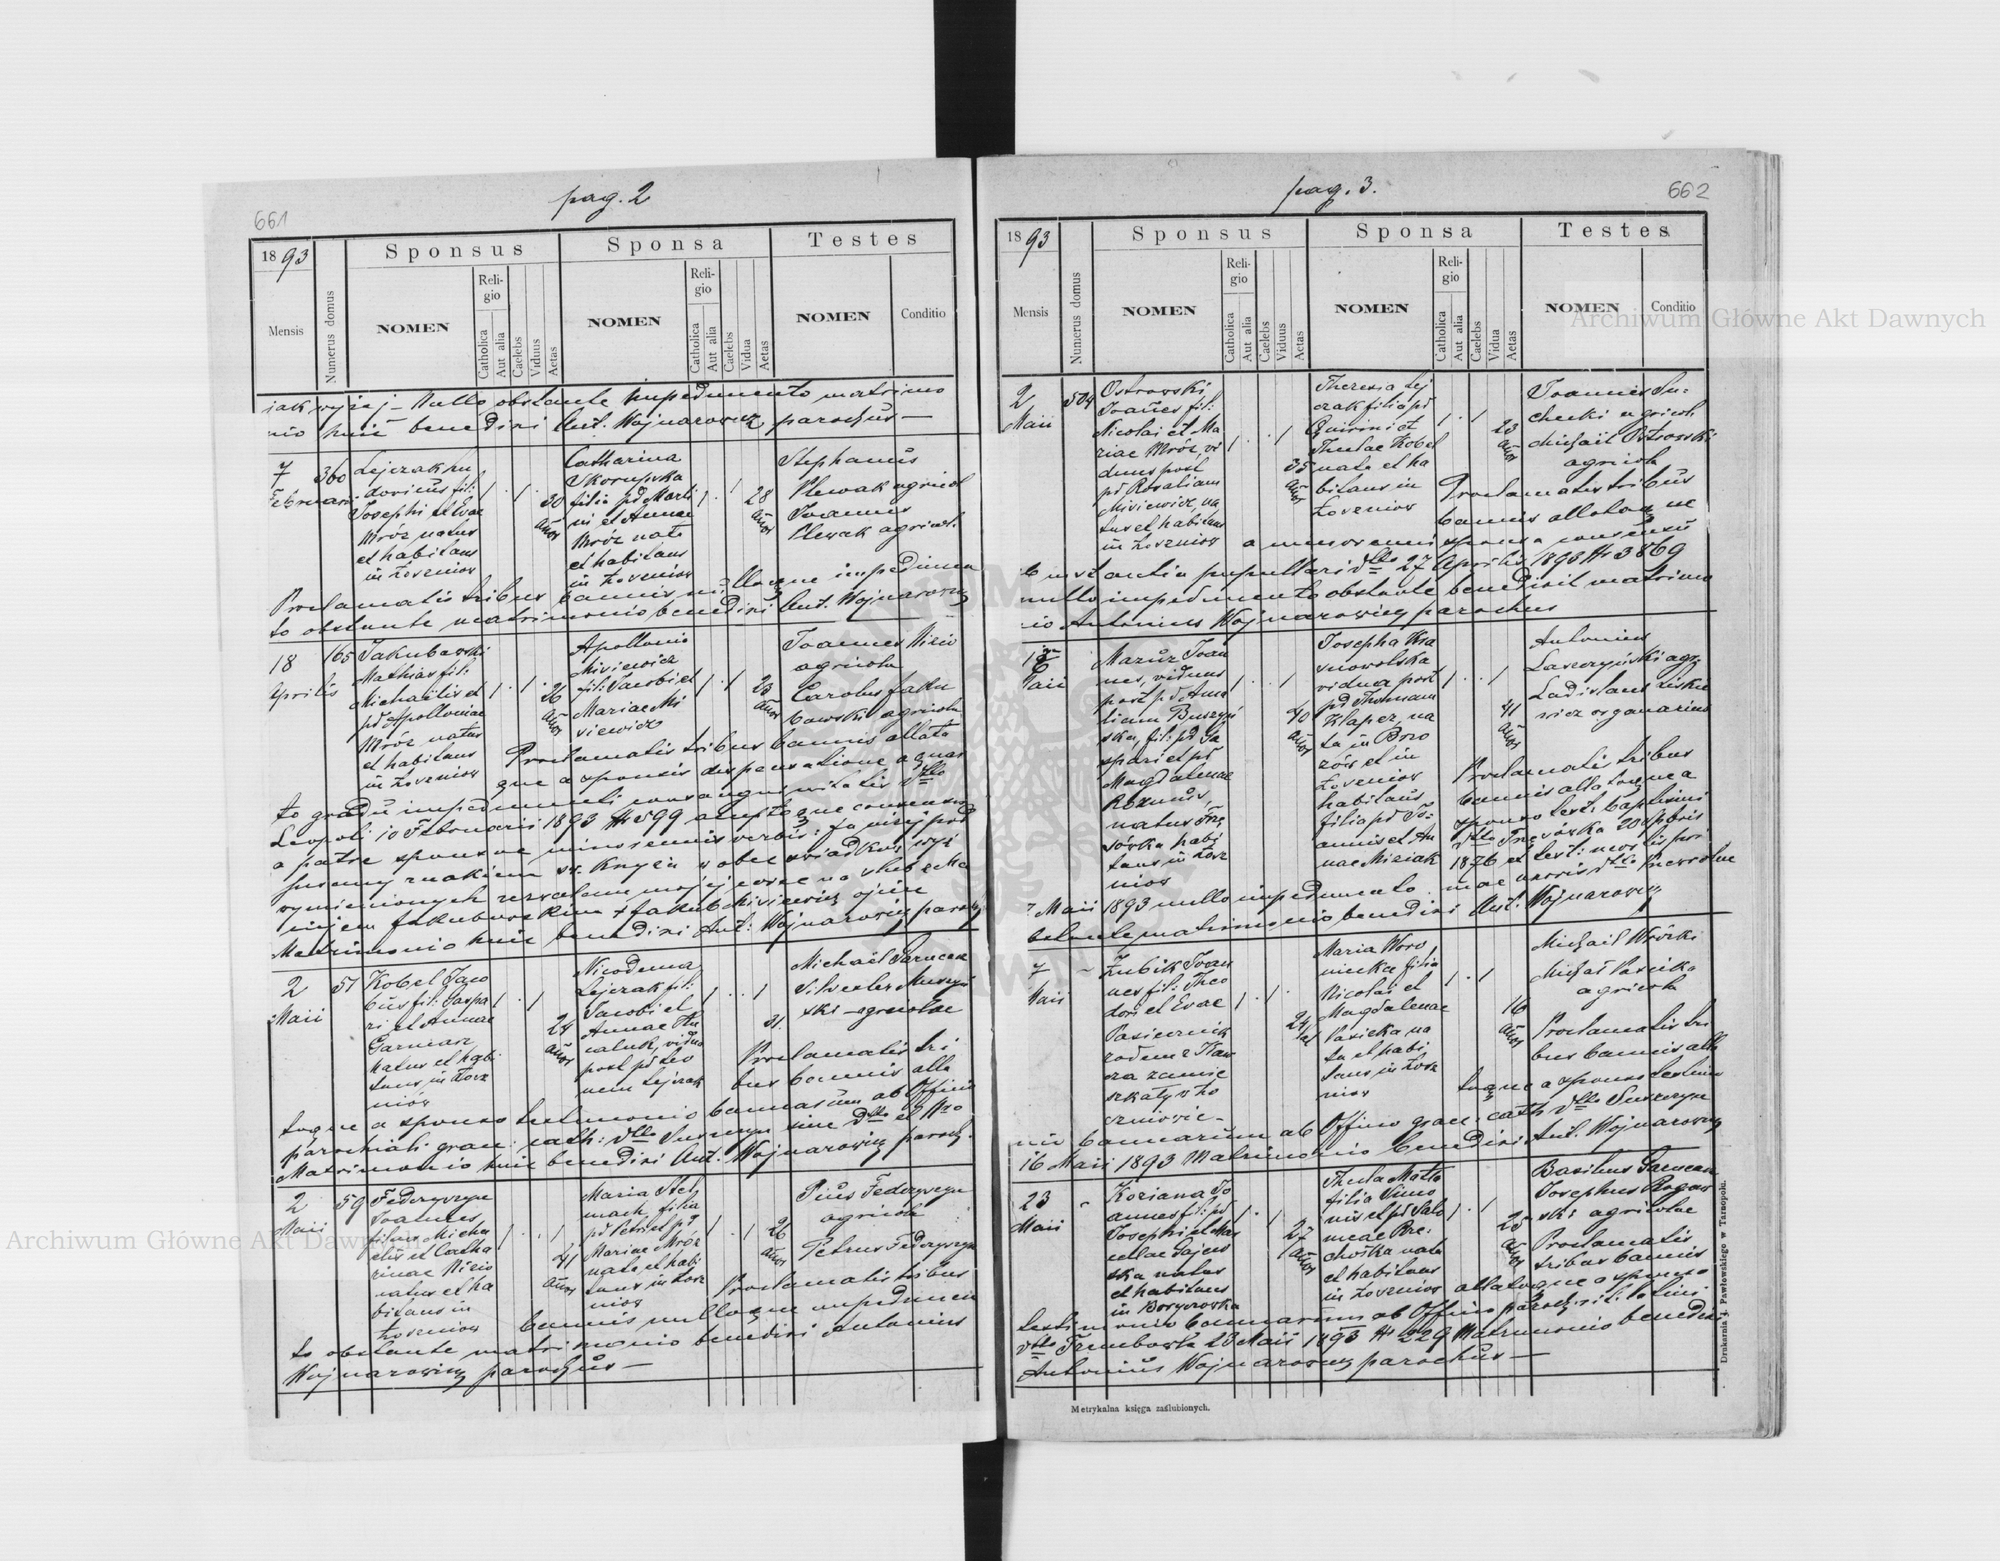 pag. 2
661
1893
Mensis
Numerus domus
Sponsus
NOMEN
Religio
Catholica
Aut alia
Caelebs
Viduus
Aetas
Sponsa
NOMEN
Religio
Catholica
Aut alia
Caelebs
Vidua
Aetas
Testes
NOMEN
Conditio
jak wyżej – Nullo obstante impedimento matrimo
nio huic benedixi Ant. Wojnarowicz parochus —
7
Februarii
360
Lejczak Lu
dovicus fil:
Josephi et Evae
Mróz natus
et habitans
in Łoszniow
30
Catharina
Skorupska
filia pd Marti
ni et Annae
Mróz nata
et habitans
in Łoszniow
28
Stephanus
Plewak agricol
Joannes
Plewak agricol.
Proclamatis tribus bannis nulloque impedimen
to obstante matrimonio benedixi Ant. Wojnarowicz
18
Aprilis
165
Jakubowski
Mathias fil:
Michaelis et
pd Apolloniae
Mróz natus
et habitans
in Łoszniow
26
Apollonia
Misiewicz
fil: Jacobi et
Mariae Mi
siewicz
23
Joannes
agricola
Carolus Jaku
bowski agricola
Proclamatis tribus bannis allata
que a sponsis dispensatione a quar
to gradu impedimenti consanguinitatis dtto
Leopoli 10 Februarii 1893 N 599 acceptoque consensu
a patre sponsae minorennis verbis: Ja niżej pod
pisany znakiem św. Krzyża w obec świadków wyż
wymienionych zezwalam mojej córce na ślub z Ma
ciejem Jakubowskim + Jakub Misiewicz ojciec
Matrimonio huic benedixi Ant: Wojnarowicz paroch
2
Maii
51
Kobel Jaco
bus fil: Gaspa
ri et Annae
Garncarz
natus et habi
tans in Łosz
niów
24
Nicodema
Lejczak fil:
Jacobi et
Annae
vidua
post pd Leo
nem Lejczak
31.
Michaël Garncarz
Silvester
ski – agricolae
Proclamatis tri
bus bannis alla
toque a sponso testimonio bannorum ab Officio
parochiali graec: cath: dtto Suszczyn sine dtto et Nro
Matrimonio huic benedixi Ant. Wojnarowicz paroch.
2
Maii
59
Federyszyn
Joannes
filius Micha
elis et Catha
rinae
natus et ha
bitans in
Łoszniow
41
Maria Stel
mach, filia
pd Petri et pd
Mariae Mróz
nata et habi
tans in Łosz
niow
26
Pius Federyszyn
agricola
Petrus Federyszyn
Proclamatis tribus
bannis nulloque impedimen
to obstante matrimonio benedixi Antonius
Wojnarowicz parochus —
pag. 3.
662
1893
Mensis
Numerus domus
Sponsus
NOMEN
Religio
Catholica
Aut alia
Caelebs
Viduus
Aetas
Sponsa
NOMEN
Religio
Catholica
Aut alia
Caelebs
Vidua
Aetas
Testes
NOMEN
Conditio
2
Maii
504
Ostrowski
Joannes fil:
Nicolai et Ma
riae Mróz, vi
duus post
pd Rosaliam
Misiewicz, na
tus et habitans
in Łoszniow
35
Theresia Lej
czak filia pd
Quirini et
Theclae Kobel
nata et ha
bitans in
Łoszniow
23
Joannes Su=
checki agricola
Michaël Ostrowski
agricola
Proclamatis tribus
bannis allatoque
a minorenni sponsa consensu
instantia pupillari dtto 27 Aprilis 1893 N 3869
nullo impedimento obstante benedixit matrimo
nio Antonius Wojnarowicz parochus
Maii
Mazur Joan
nes, viduus
post pd Ama
liam
ska, fil: pd Ga
spari et pd
Magdalenae
natus
habi
tans in Łosz
niow
40
Josepha Kra
snowolska
vidua post
pd Thomam
Klapez, na
ta in Brzo
zów et in
Łoszniow
habitans
filia pd Jo=
annis et An
nae Misiak
41
Antonius
Laszczyński agr.
Ladislaus Liskie
wicz organarius
Proclamatis tribus
bannis allatoque a
sponso test. baptismi
1876 et test: mortis pri
mae uxoris dtto
7 Maii 1893 nullo impedimento
obstante matrimonio benedixi Ant. Wojnarowicz
7
Maii
Zubik Joan
nes fil: Theo
dori et Evae
Pasiecznik
rodem z Kaw
cza zamie
szkały w Ło
szniowie –
24
Maria Woro
niecka filia
Nicolai et
Magdalenae
Pasieka na
ta et habi
tans in Łosz
niow
16
Michaël Wrózki
Michał Pasieka
agricola
Proclamatis tri
bus bannis alla
toque a sponso testimo
nio bannorum ab Officio graec: cath dtto Suszczyn
16 Maii 1893 Matrimonio benedixi Ant. Wojnarowicz
23
Maii
Koziana Jo
annes fil: pd
Josephi et
Gajew
ska natus
et habitans
in Boryczowka
27
Thecla Matla
filia Simo
nis et pd Salo
meae
nata
et habitans
in Łoszniow
25
Basilius Garncarz
Josephus Rogow
ski agricolae
Proclamatis
tribus bannis
allatoque a sponso
testimonio bannorum ab Officio paroch. r. l. latini
dtto Trembowla 23 Maii 1893 N 229 Matrimonio benedixi
Antonius Wojnarowicz parochus —
Metrykalna księga zaślubionych.
Drukarnia J. Pawłowskiego w Tarnopolu.
Archiwum Główne Akt Dawnych
Archiwum Główne Akt Dawnych